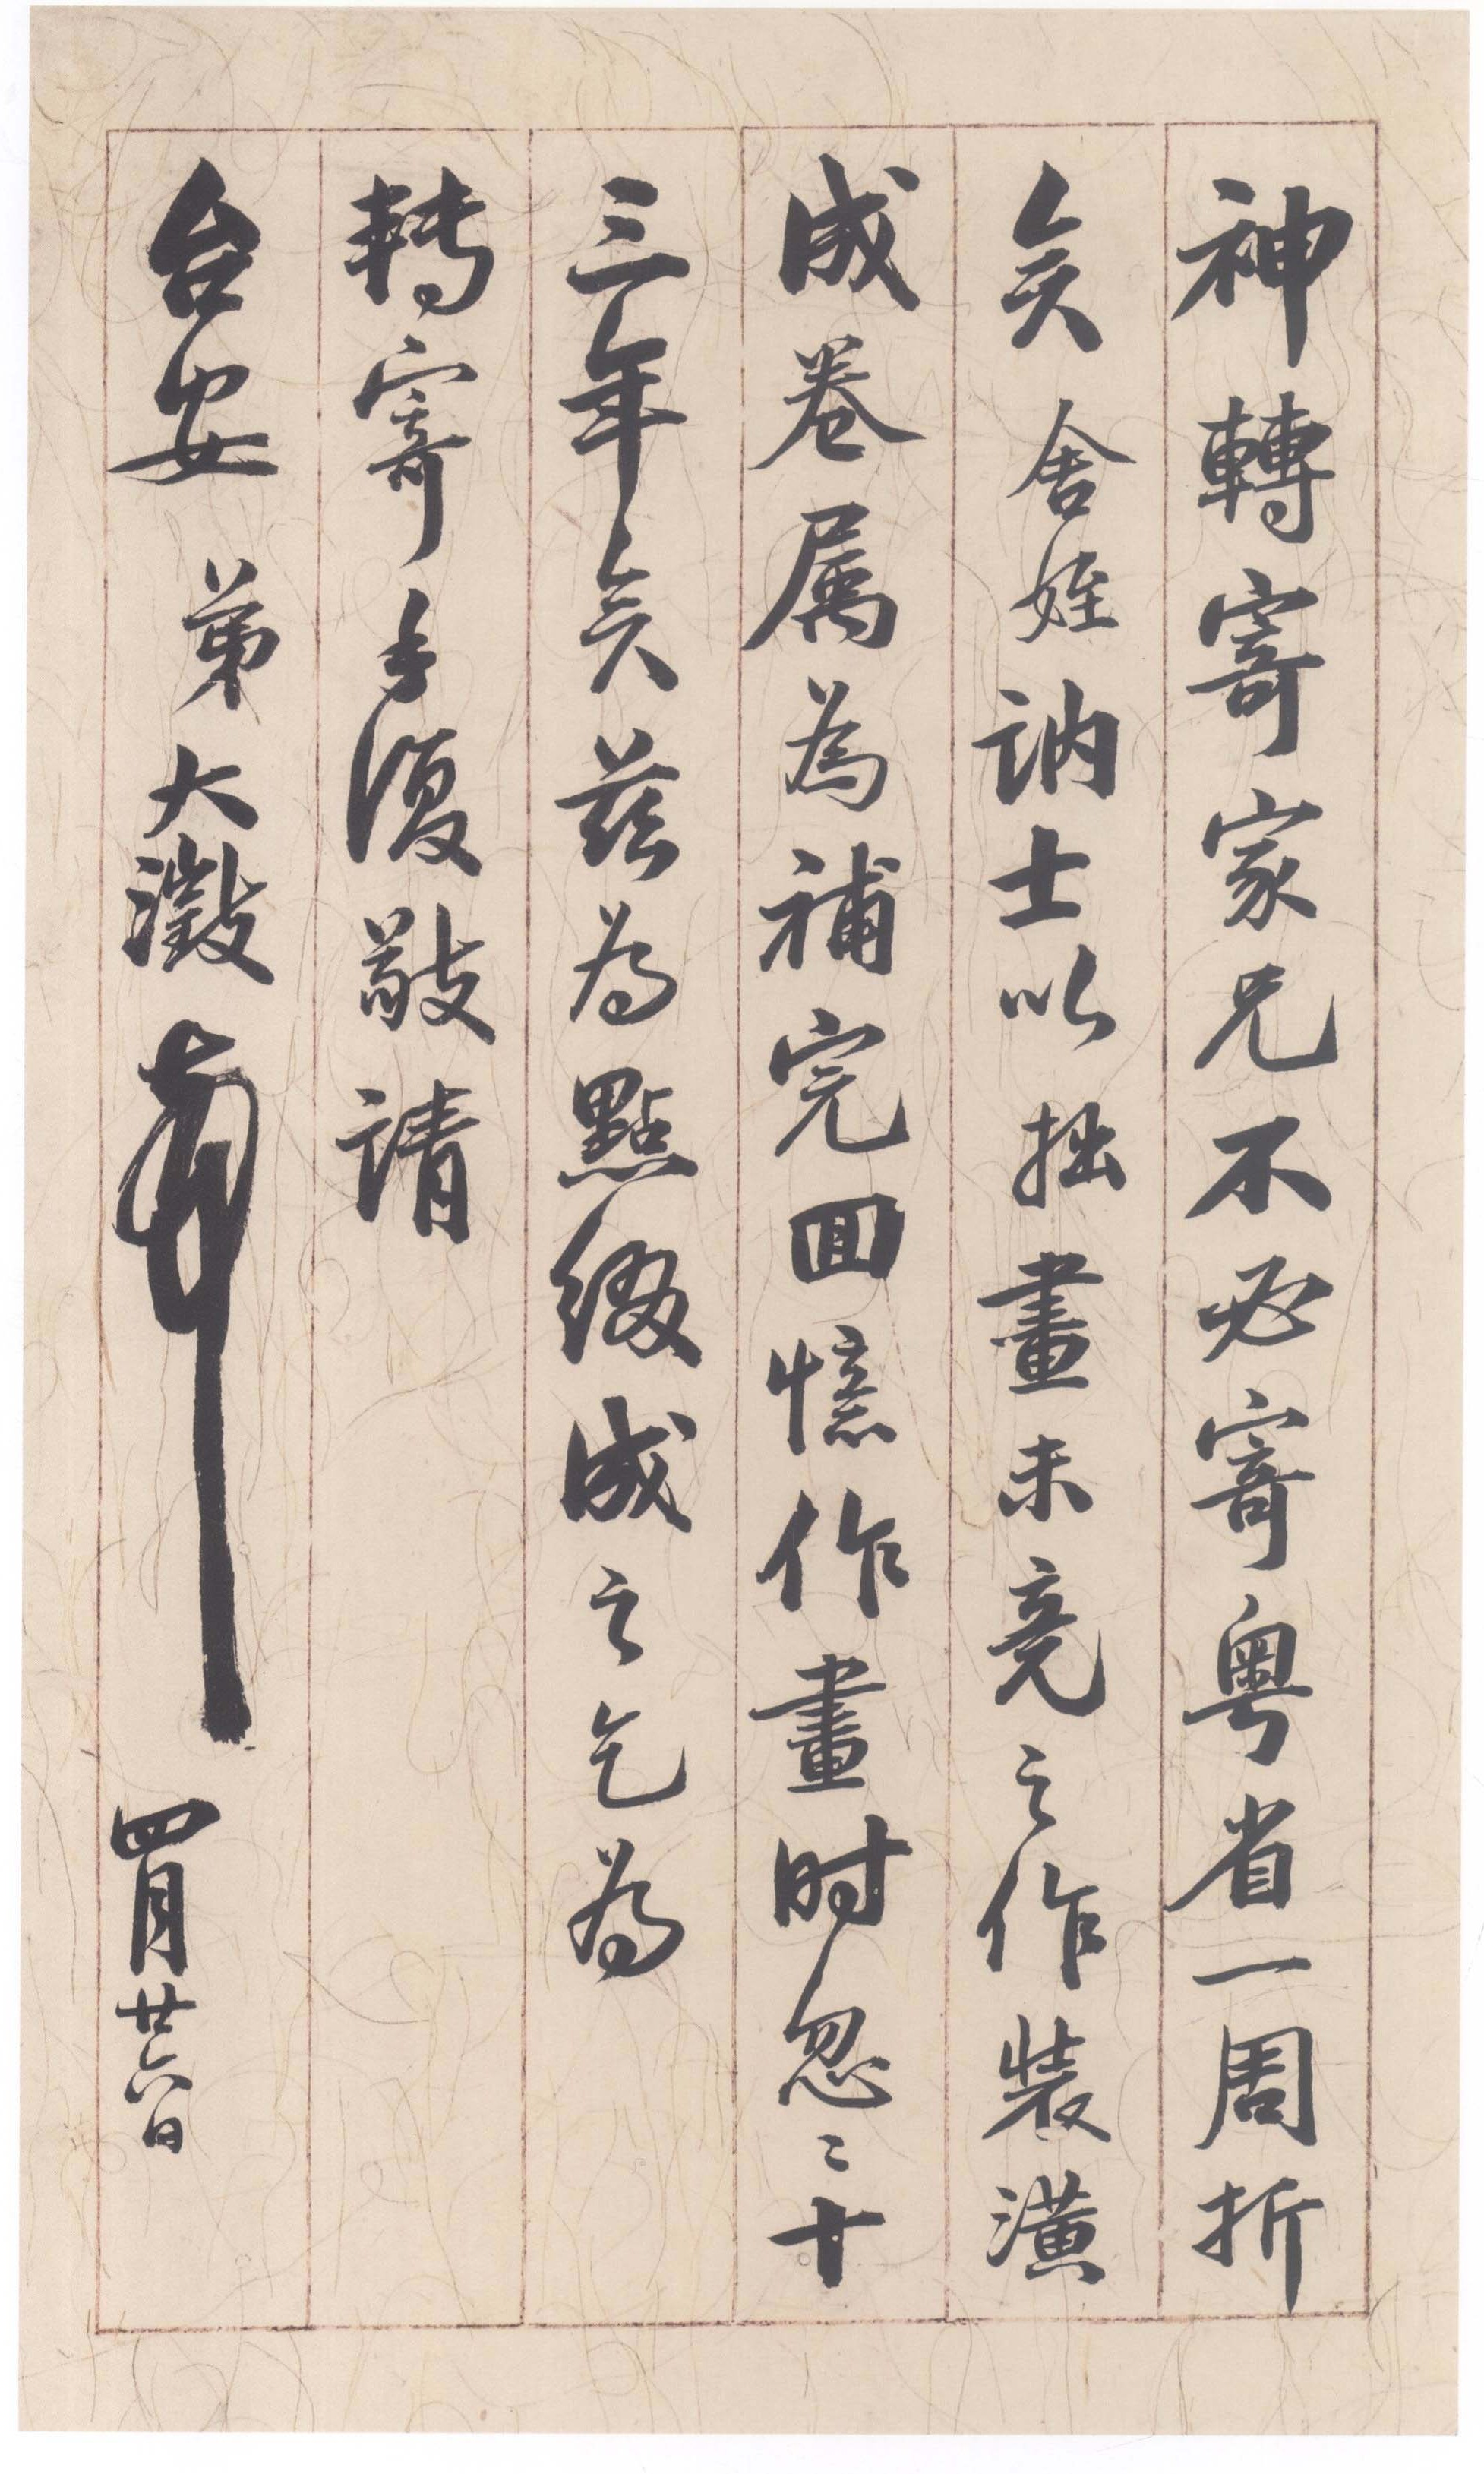 神轉寄家兄不必寄粵省一周折
矣舍姪訥士以拙畫未竟之作裝潢
成卷屬為補完回憶作畫時忽〻十
三年矣茲為點綴成之乞為
轉寄手復敬請
台安 弟大澂頓首 四月廿六日